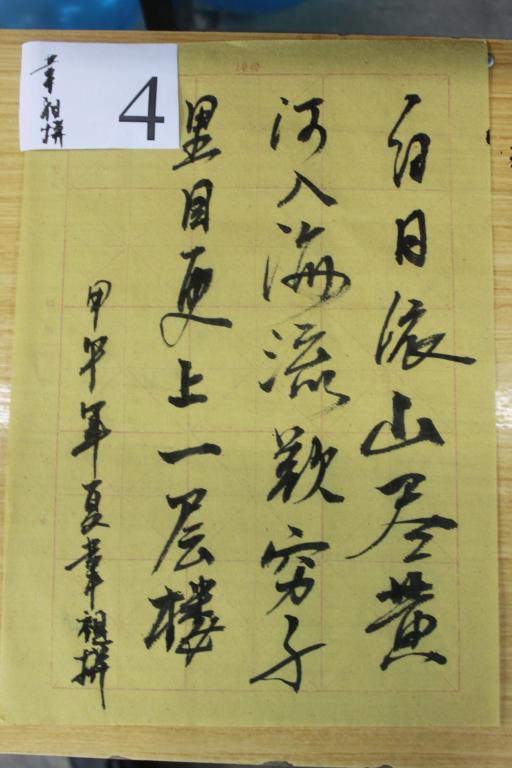 白日依山尽黄
河入海流欲穷千
里目更上一层楼
甲午年夏韋祖拼
韋祖拼
4